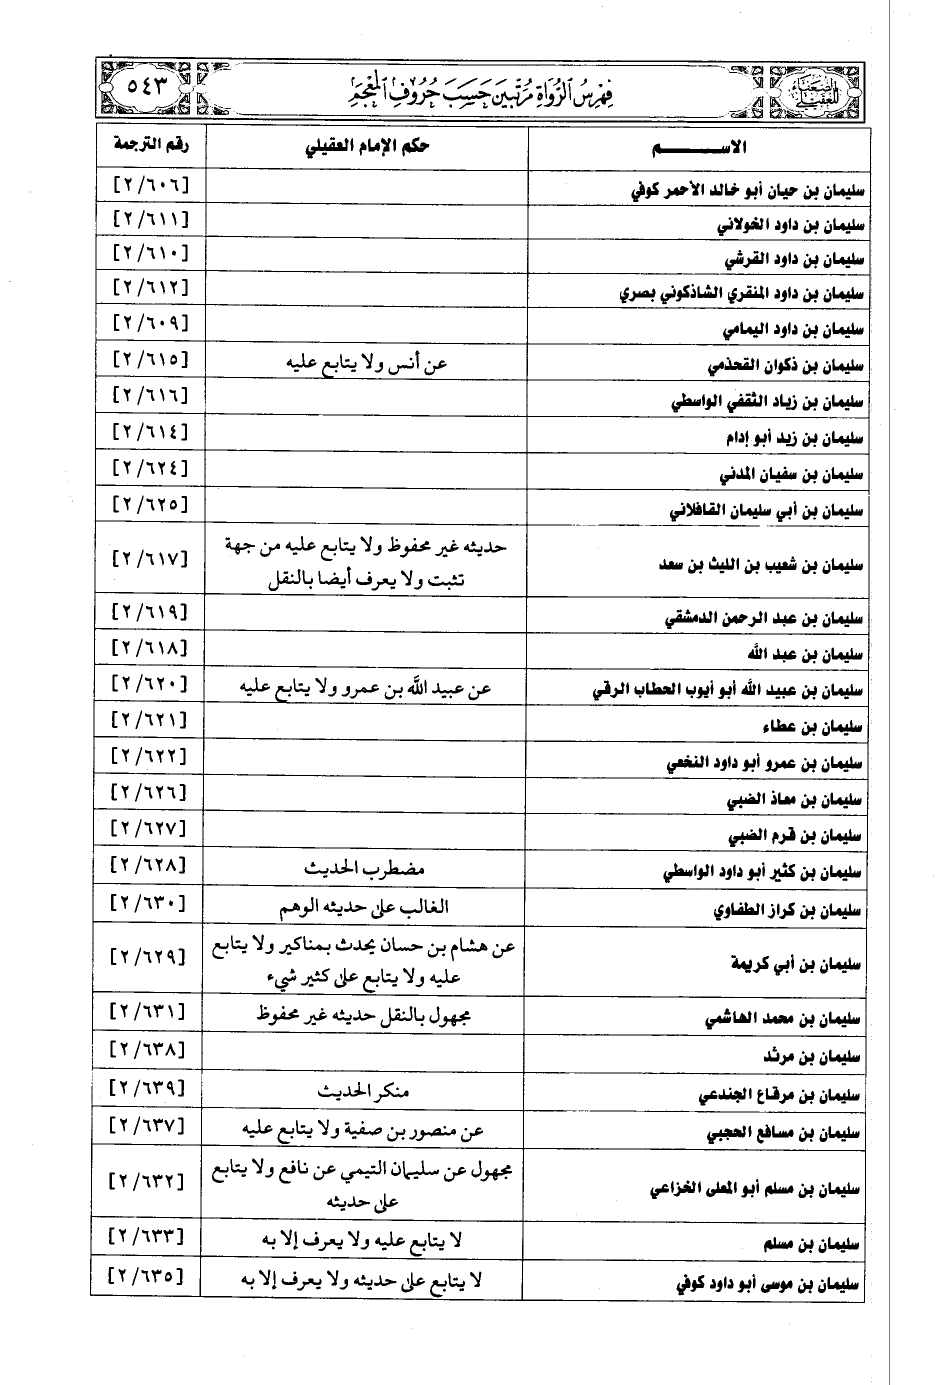 الضعفاء للعقيلي فهرس الرواة مرتبين حسب حروف المعجم ٥٤٣
الاسـم حكم الإمام العقيلي رقم الترجمة
سليمان بن حيان أبو خالد الأحمر كوفي [٢/٦٠٦]
سليمان بن داود الخولاني [٢/٦١١]
سليمان بن داود القرشي [٢/٦١٠]
سليمان بن داود المنقري الشاذكوني بصري [٢/٦١٢]
سليمان بن داود اليمامي [٢/٦٠٩]
سليمان بن ذكوان القحذمي عن أنس ولا يتابع عليه [٢/٦١٥]
سليمان بن زياد الثقفي الواسطي [٢/٦١٦]
سليمان بن زيد أبو إدام [٢/٦١٤]
سليمان بن سفيان المدني [٢/٦٢٤]
سليمان بن أبي سليمان القافلاني [٢/٦٢٥]
سليمان بن شعيب بن الليث بن سعد حديثه غير محفوظ ولا يتابع عليه من جهة [٢/٦١٧]
تثبت ولا يعرف أيضا بالنقل
سليمان بن عبد الرحمن الدمشقي [٢/٦١٩]
سليمان بن عبد الله [٢/٦١٨]
سليمان بن عبيد الله أبو أيوب الحطاب الرقي عن عبيد اللَّه بن عمرو ولا يتابع عليه [٢/٦٢٠]
سليمان بن عطاء [٢/٦٢١]
سليمان بن عمرو أبو داود النخعي [٢/٦٢٢]
سليمان بن معاذ الضبي [٢/٦٢٦]
سليمان بن قرم الضبي [٢/٦٢٧]
سليمان بن كثير أبو داود الواسطي مضطرب الحديث [٢/٦٢٨]
سليمان بن كراز الطفاوي الغالب على حديثه الوهم [٢/٦٣٠]
سليمان بن أبي كريمة عن هشام بن حسان يحدث بمناكير ولا يتابع [٢/٦٢٩]
عليه ولا يتابع على كثير شيء
سليمان بن محمد الهاشمي مجهول بالنقل حديثه غير محفوظ [٢/٦٣١]
سليمان بن مرثد [٢/٦٣٨]
سليمان بن مرقاع الجندعي منكر الحديث [٢/٦٣٩]
سليمان بن مسافع الحجبي عن منصور بن صفية ولا يتابع عليه [٢/٦٣٧]
سليمان بن مسلم أبو المعلى الخزاعي مجهول عن سليمان التيمي عن نافع ولا يتابع [٢/٦٣٢]
على حديثه
سليمان بن مسلم لا يتابع عليه ولا يعرف إلا به [٢/٦٣٣]
سليمان بن موسى أبو داود كوفي لا يتابع على حديثه ولا يعرف إلا به [٢/٦٣٥]